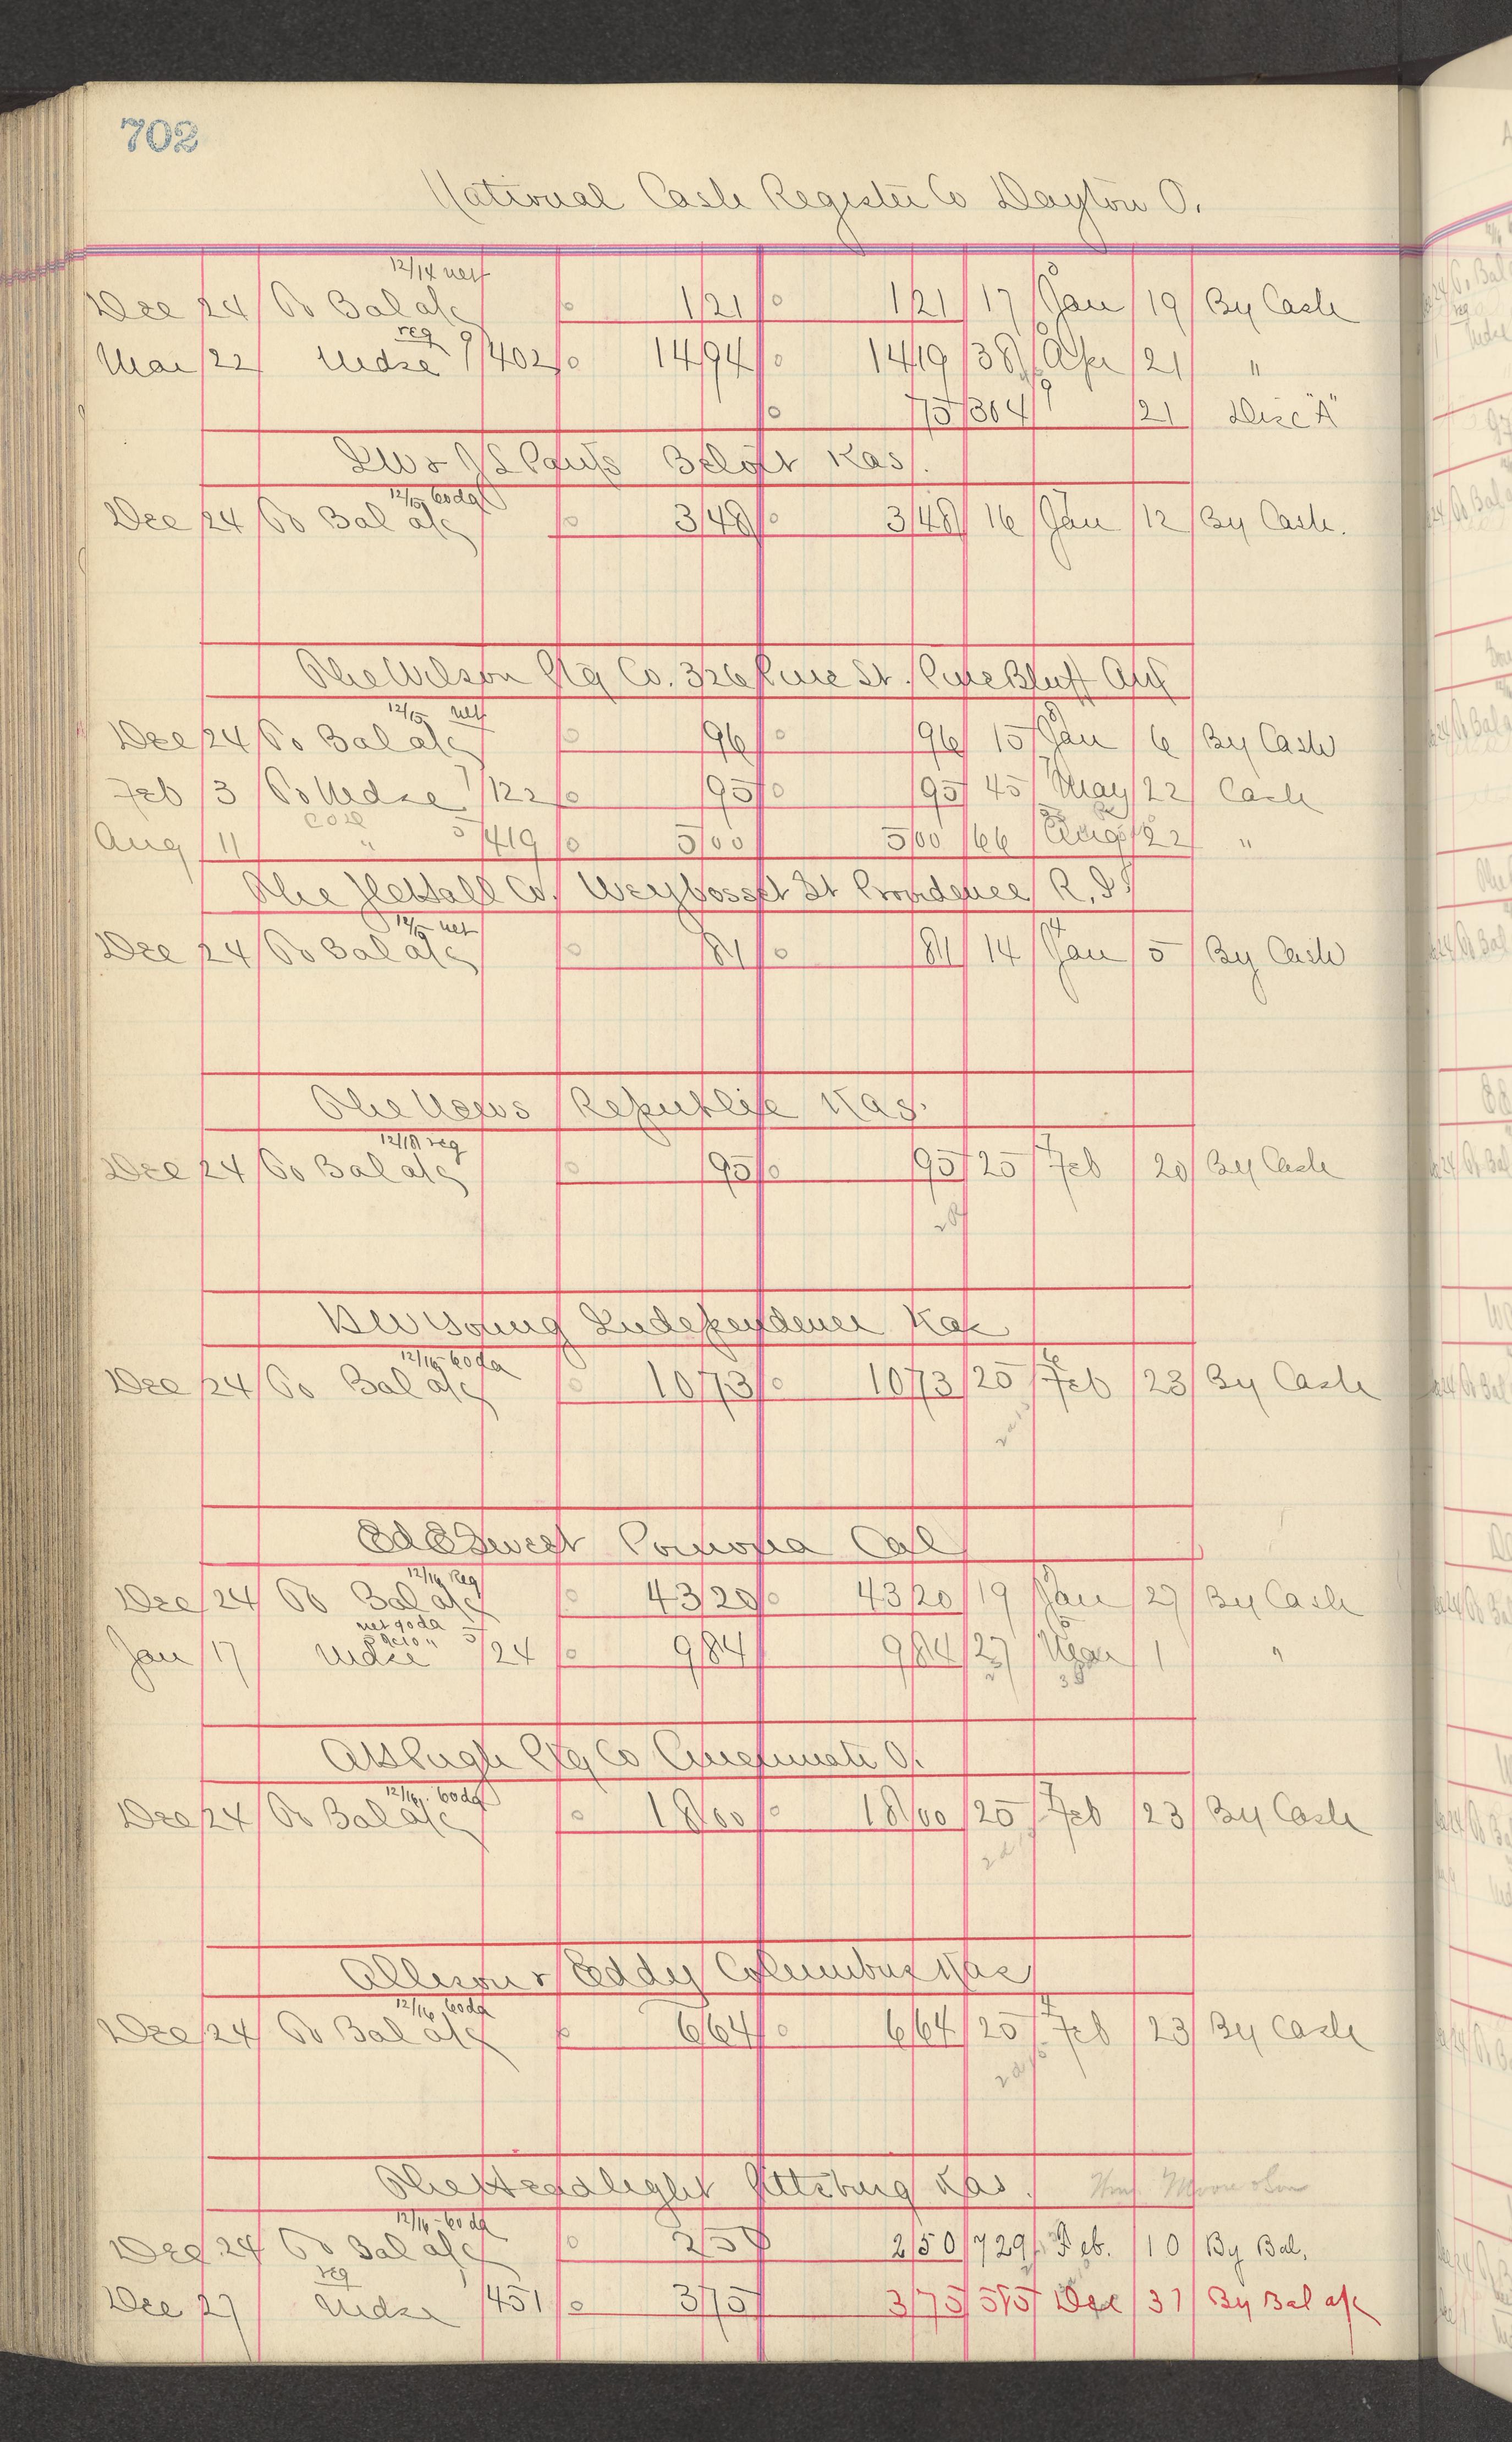 702
National Cash Register Co Dayton O.
12/14 net
Dec 24 To Bal a/c 1 21 1 21 17 Jan 19 By Cash
reg
Mar 22 Mdse 9/402 14 94 14 19 38 Apr 21 "
75 304 21 Disc "A"
Beloit Kas.
12/15 60 da
Dec 24 To Bal a/c 3 48 3 48 16 Jan 12 By Cash.
The Wilson Ptg Co. 326 Pine St. Pine Bluff Ark
12/15 net
Dec 24 To Bal a/c 96 96 15 Jan 6 By Cash
Feb 3 To Mdse 7/122 95 95 45 May 22 Cash
Aug 11 " 5/419 5 00 5 00 66 Aug 22 "
The Hall Co. Weybosset St Providence R.I.
12/15 net
Dec 24 To Bal a/c 81 81 14 Jan 5 By Cash
The News Republic Kas.
12/18 reg
Dec 24 To Bal a/c 95 95 25 Feb 20 By Cash
Young Independence Kas
12/16 60 da
Dec 24 To Bal a/c 10 73 10 73 25 Feb 23 By Cash
Ed E Sweet Pomona Cal
12/16 Reg
Dec 24 To Bal a/c 43 20 43 20 19 Jan 27 By Cash
net 90 da
Jan 17 Mdse 5/24 9 84 9 84 27 Mar 1 "
Pugh Ptg Co Cincinnati O.
12/16 60 da
Dec 24 To Bal a/c 18 00 18 00 25 Feb 23 By Cash
Allison & Eddy Columbus Kas
12/16 60 da
Dec 24 To Bal a/c 6 64 6 64 25 Feb 23 By Cash
The Headlight Pittsburg Kas. Moore
12/16 - 60 da
Dec 24 To Bal a/c 2 50 2 50 729 Feb. 10 By Bal.
reg
Dec 27 Mdse 451 3 75 3 75 585 Dec 31 By Bal a/c